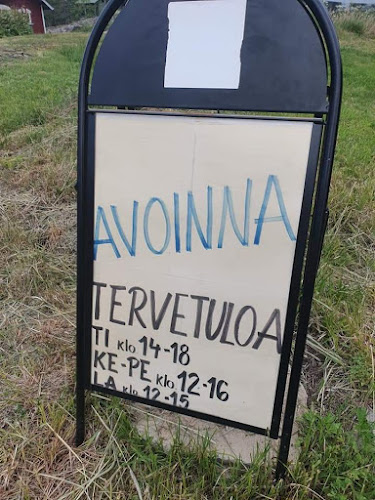 AVOINNA
TERVETULOA
TI klo 14-18
KE-PE klo 12-16
LA klo 12-15